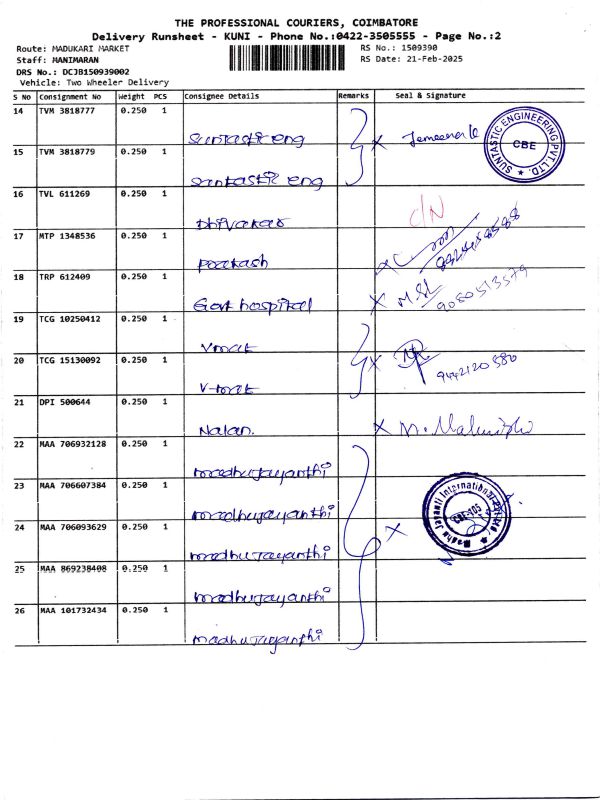 THE PROFESSIONAL COURIERS, COIMBATORE
Delivery Runsheet - KUNI - Phone No.:0422-3505555 - Page No.:2
Route: MADUKARI MARKET
RS No.: 1509390
Staff: MANIMARAN
RS Date: 21-Feb-2025
DRS No.: DCJB150939002
Vehicle: Two Wheeler Delivery
S No Consignment No Weight PCS Consignee Details Remarks Seal & Signature
14 TVM 3818777 0.250 1
Suntastic eng
15 TVM 3818779 0.250 1
Suntastic eng
SUNTASTIC ENGINEERING PVT. LTD.
CBE
16 TVL 611269 0.250 1
Dhivakar C/N
17 MTP 1348536 0.250 1
Prakash
18 TRP 612409 0.250 1
Govt hospital 9080513579
19 TCG 10250412 0.250 1
V-mat
20 TCG 15130092 0.250 1
V-mat 9442120580
21 DPI 500644 0.250 1
Nalan.
22 MAA 706932128 0.250 1
madhujayanthi
23 MAA 706607384 0.250 1
madhujayanthi
Madhu Jayanti International
24 MAA 706093629 0.250 1
madhujayanthi
25 MAA 869238408 0.250 1
madhujayanthi
26 MAA 101732434 0.250 1
madhujayanthi